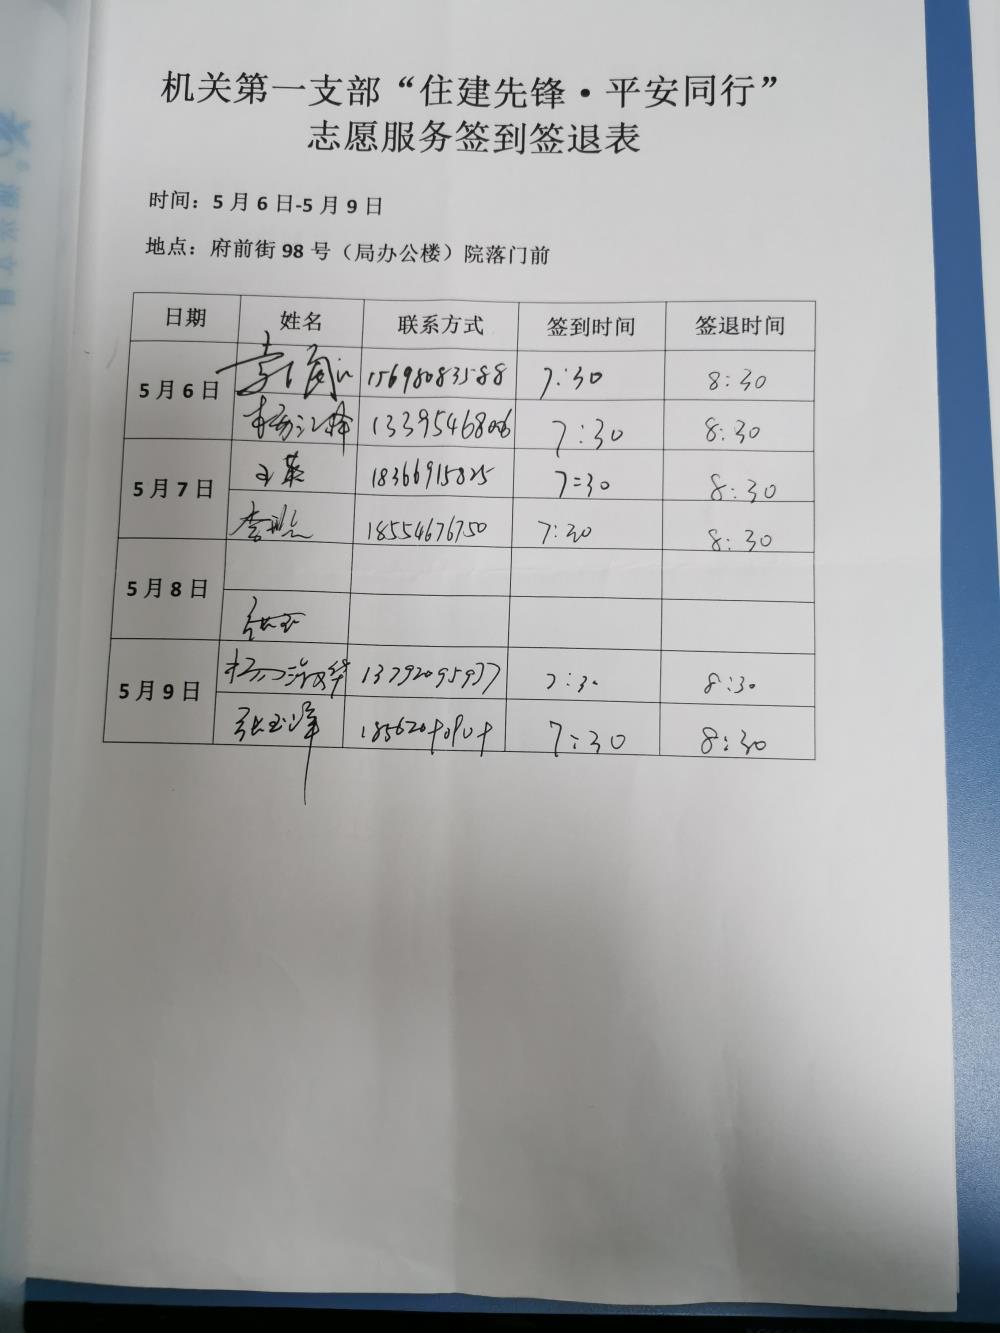 机关第一支部“住建先锋·平安同行”
志愿服务签到签退表
时间：5月6日-5月9日
地点：府前街98号（局办公楼）院落门前
日期 姓名 联系方式 签到时间 签退时间
5月6日 15698083588 7:30 8:30
杨江峰 13395468006 7:30 8:30
5月7日 王英 18366915825 7:30 8:30
李 18554676750 7:30 8:30
5月8日
张玉
5月9日 杨淑华 13792095937 7:30 8:30
张玉峰 7:30 8:30